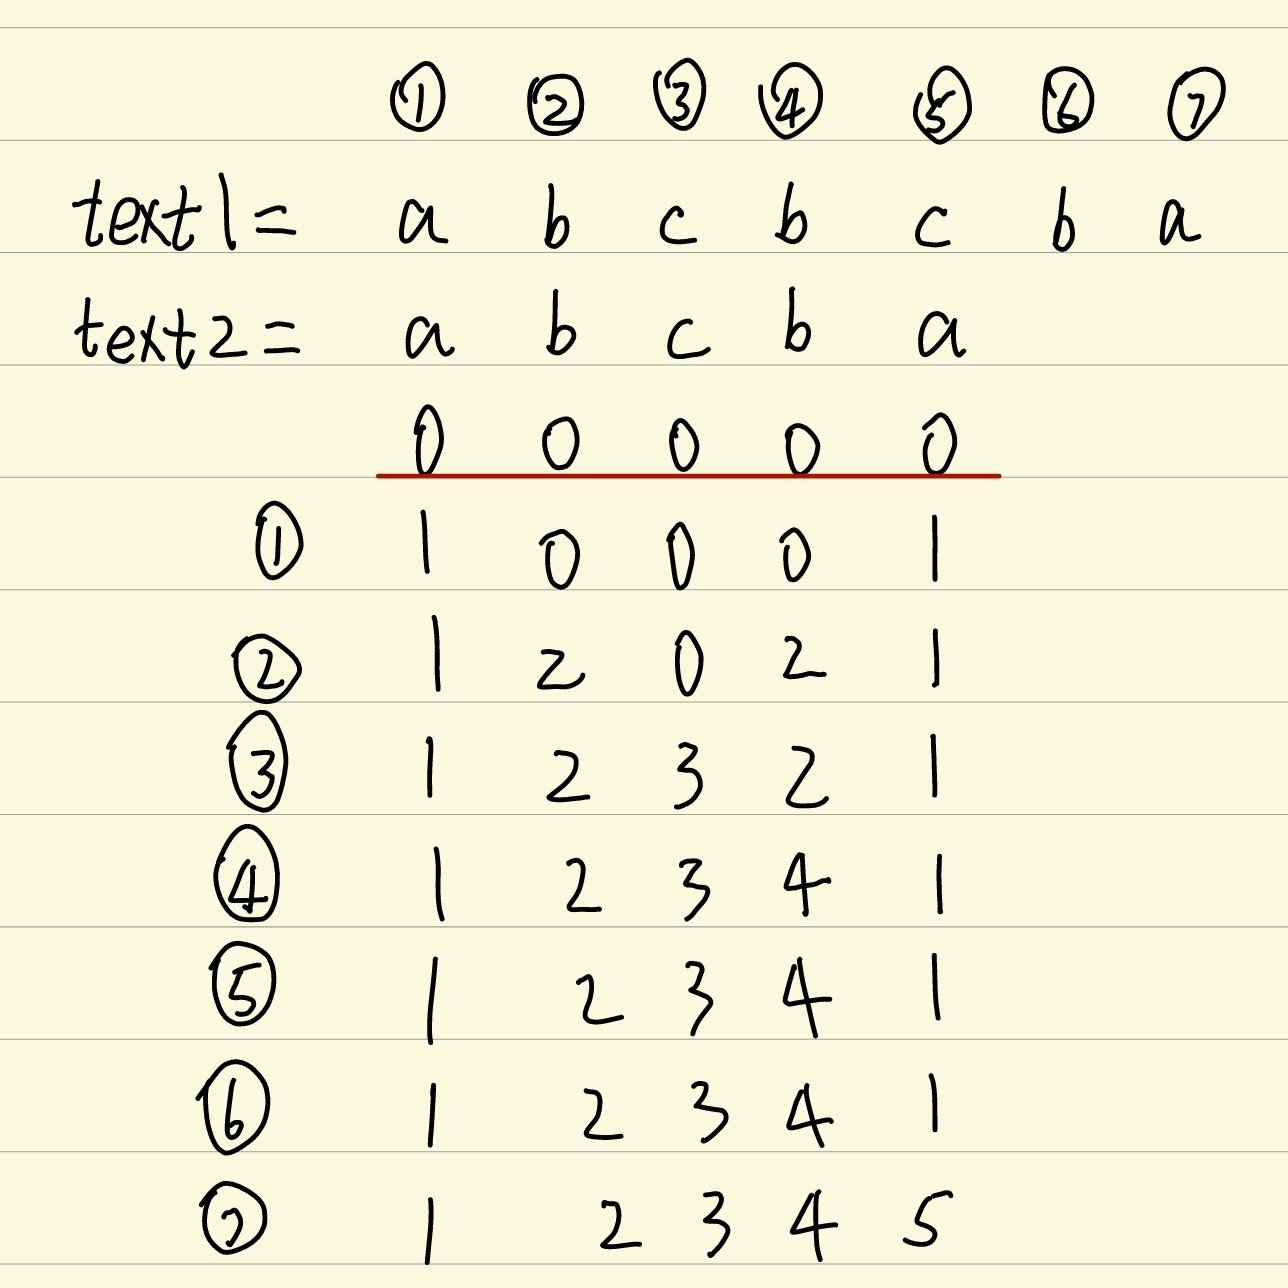 ① ② ③ ④ ⑤ ⑥ ⑦
text1= a b c b c b a
text2= a b c b a
0 0 0 0 0
① 1 0 0 0 1
② 1 2 0 2 1
③ 1 2 3 2 1
④ 1 2 3 4 1
⑤ 1 2 3 4 1
⑥ 1 2 3 4 1
⑦ 1 2 3 4 5